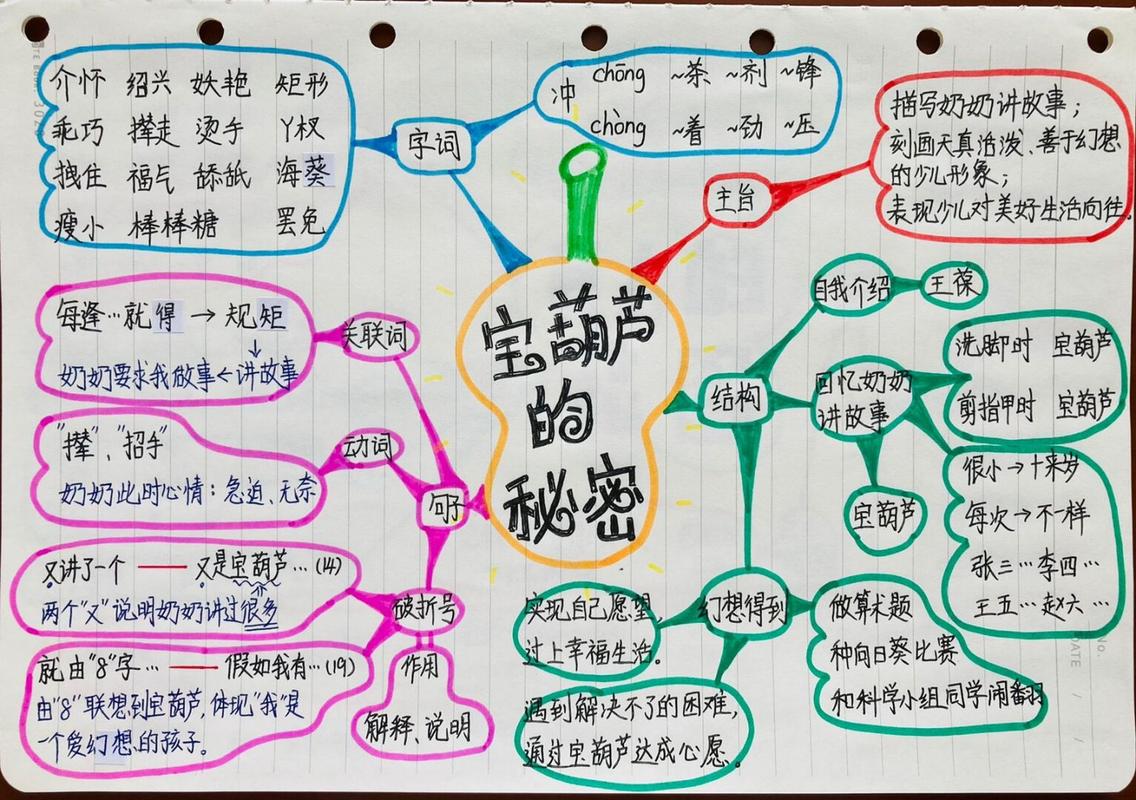 介怀 绍兴 妖艳 矩形
乖巧 撵走 烫手 丫杈
拽住 福气 舔舐 海葵
瘦小 棒棒糖 罢免
字词
冲
chōng ~茶 ~剂 ~锋
chòng ~着 ~劲 ~压
主旨
描写奶奶讲故事；
刻画天真活泼、善于幻想
的少儿形象；
表现少儿对美好生活向往。
宝葫芦
的
秘密
每逢…就得 → 规矩
↓
奶奶要求我做事←讲故事
关联词
"撵"、"招手"
奶奶此时心情：急迫、无奈
动词
句子
又讲了一个 —— 又是宝葫芦…(14)
两个"又"说明奶奶讲过很多
就由"8"字… —— 假如我有…(19)
由"8"联想到宝葫芦,体现"我"是
一个爱幻想的孩子。
破折号
作用
解释、说明
结构
自我介绍
王葆
回忆奶奶
讲故事
洗脚时 宝葫芦
剪指甲时 宝葫芦
宝葫芦
很小→十来岁
每次→不一样
张三…李四…
王五…赵六…
幻想得到
实现自己愿望,
过上幸福生活。
遇到解决不了的困难,
通过宝葫芦达成心愿。
做算术题
种向日葵比赛
和科学小组同学闹翻
No.
DATE / /